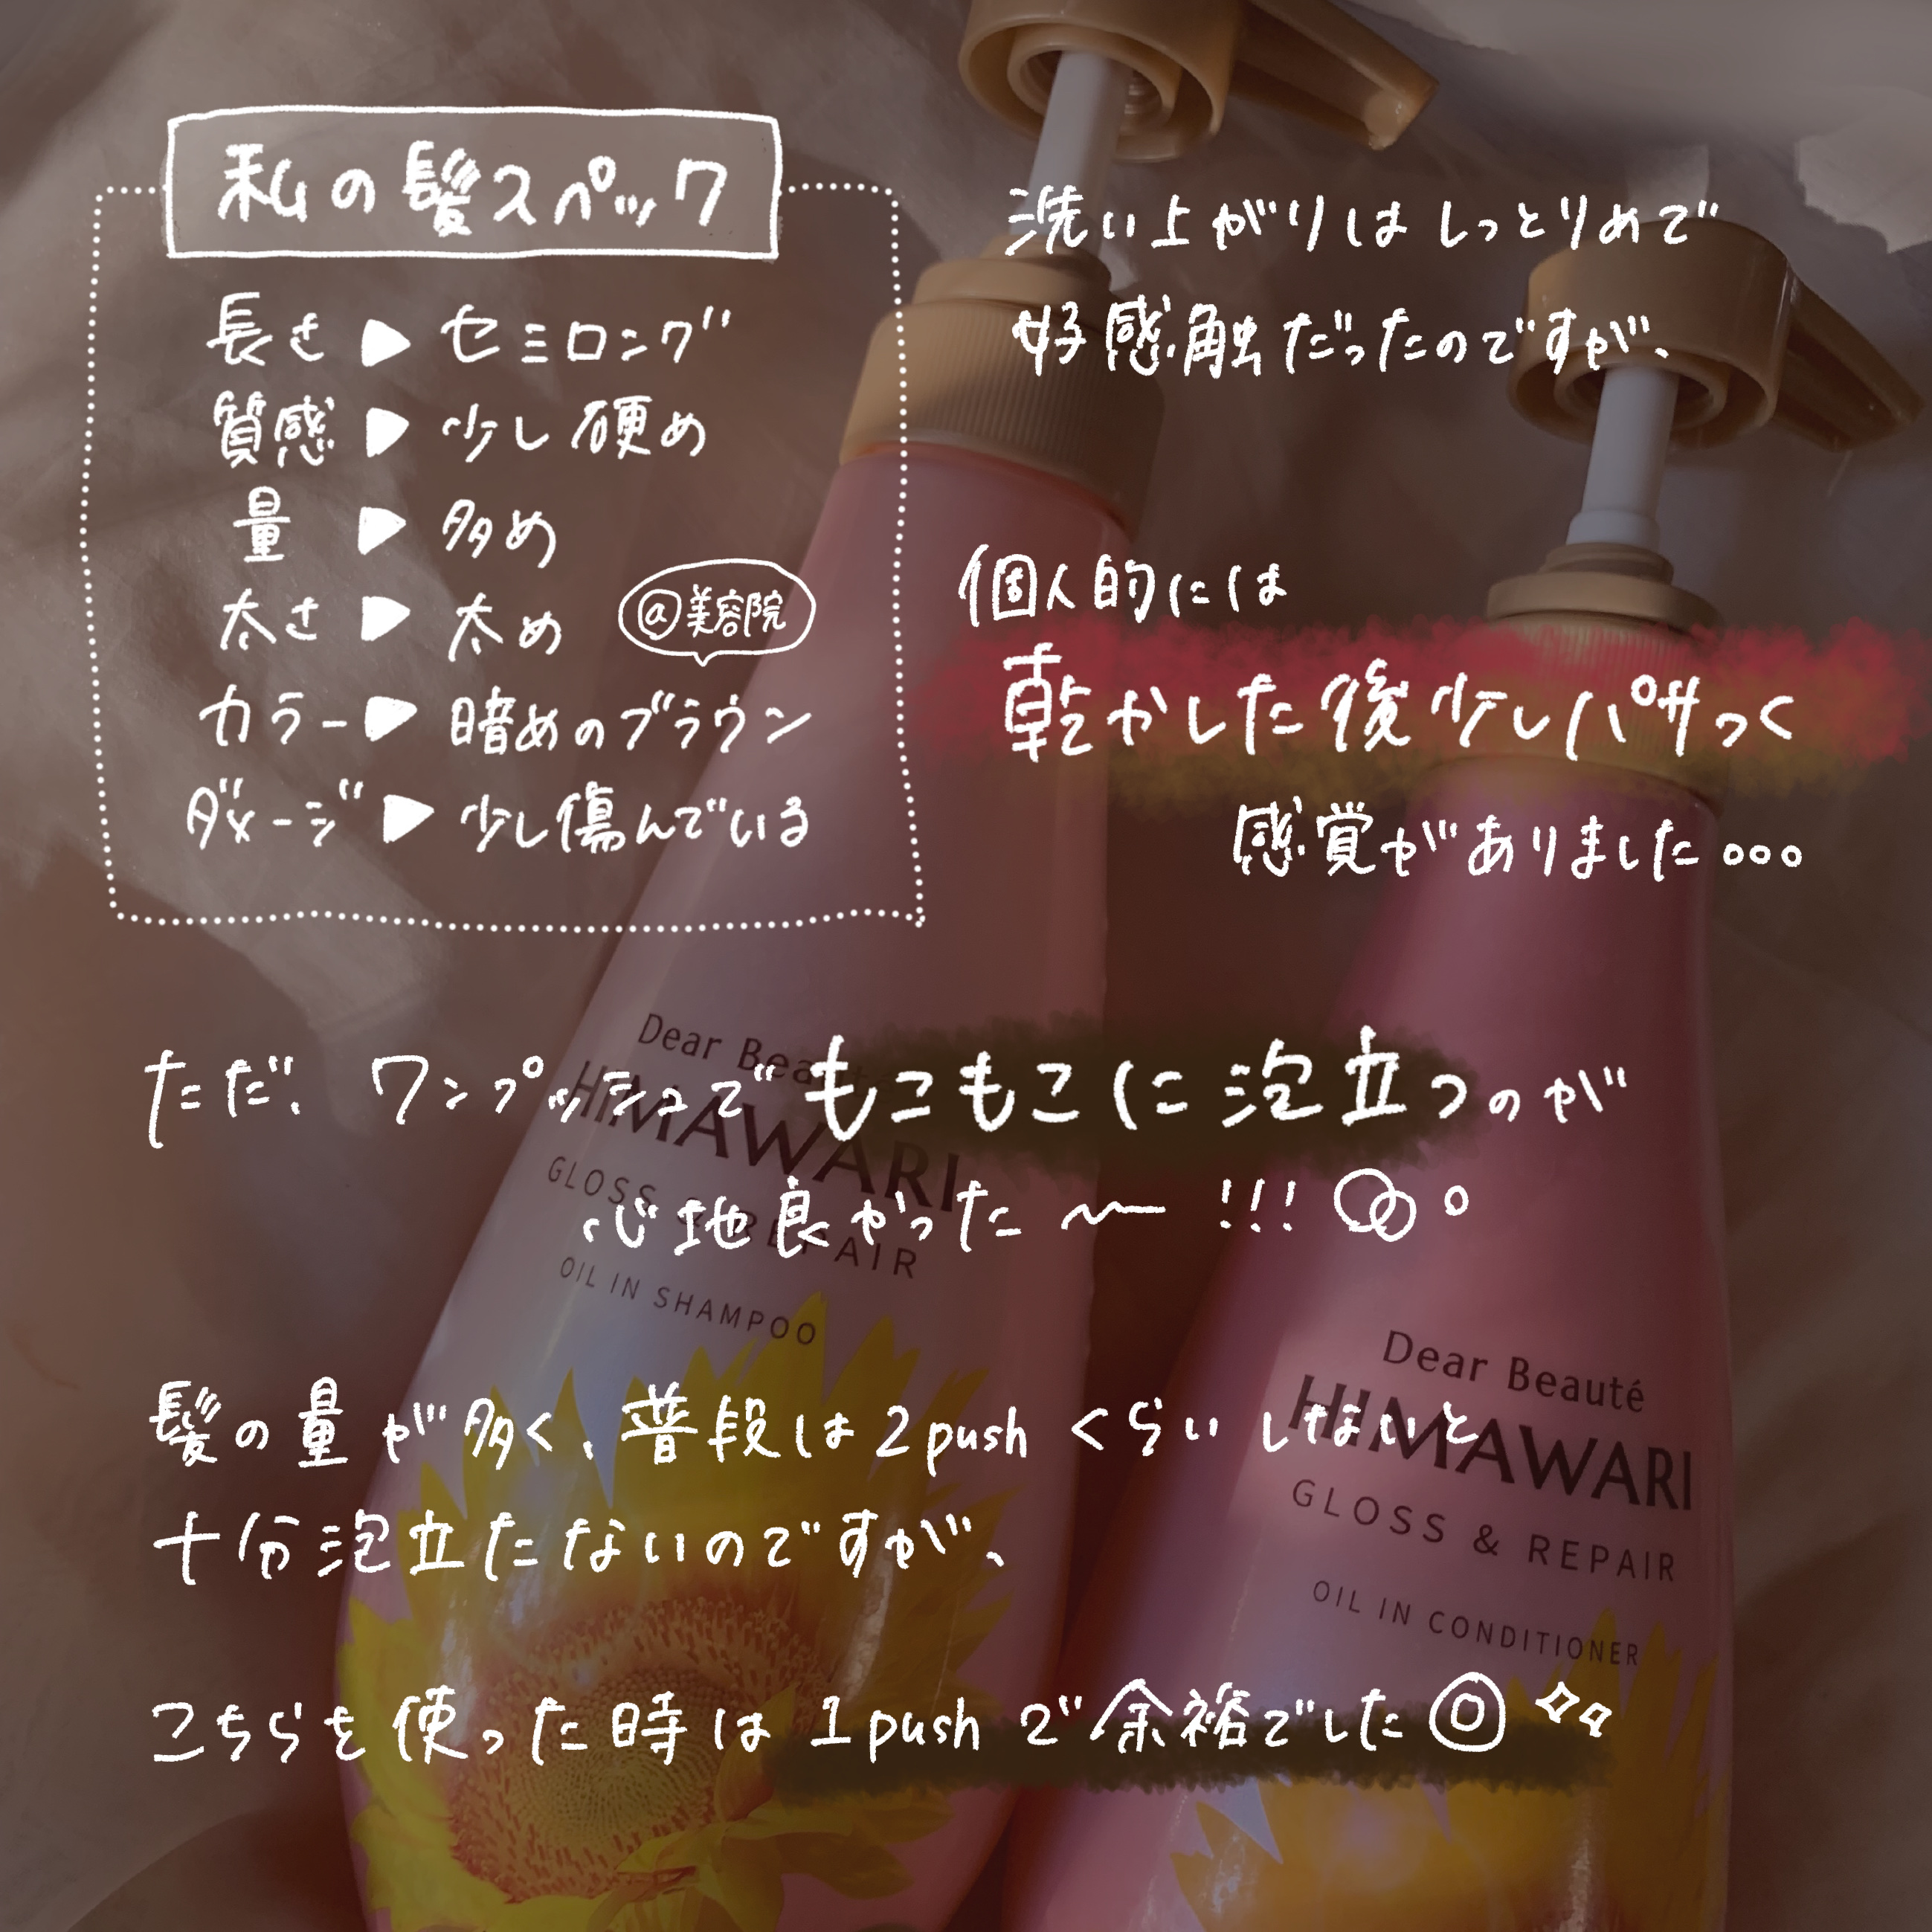 私の髪スペック
長さ▶セミロング
質感▶少し硬め
量▶多め
太さ▶太め
@美容院
カラー▶暗めのブラウン
ダメージ▶少し傷んでいる
洗い上がりはしっとりめで
好感触だったのですが、
個人的には
乾かした後少しパサつく
感覚がありました...
ただ、ワンプッシュでもこもこに泡立つのが
心地良かった〜!!!
髪の量が多く、普段は2pushくらいしないと
十分泡立たないのですが、
こちらを使った時は1pushで余裕でした◎
Dear Beauté
HIMAWARI
GLOSS & REPAIR
OIL IN SHAMPOO
Dear Beauté
HIMAWARI
GLOSS & REPAIR
OIL IN CONDITIONER